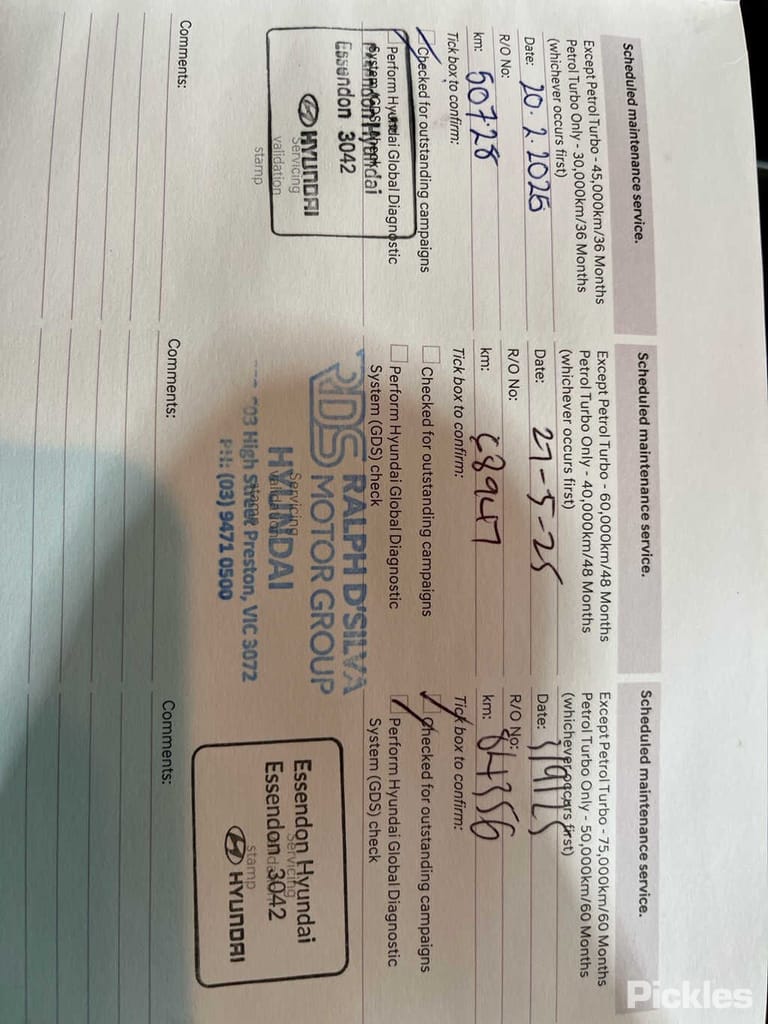 Scheduled maintenance service.
Except Petrol Turbo - 45,000km/36 Months
Petrol Turbo Only - 30,000km/36 Months
(whichever occurs first)
Date: 20.2.2025
R/O No:
km: 50728
Tick box to confirm:
Checked for outstanding campaigns
Perform Hyundai Global Diagnostic
System (GDS) check
Essendon Hyundai
Essendon 3042
HYUNDAI
Servicing
validation
stamp
Comments:
Scheduled maintenance service.
Except Petrol Turbo - 60,000km/48 Months
Petrol Turbo Only - 40,000km/48 Months
(whichever occurs first)
Date: 27-5-25
R/O No:
km: 68947
Tick box to confirm:
Checked for outstanding campaigns
Perform Hyundai Global Diagnostic
System (GDS) check
RDS RALPH D'SILVA
MOTOR GROUP
Servicing
HYUNDAI
validation
stamp
High Street Preston, VIC 3072
PH: (03) 9471 0500
Comments:
Scheduled maintenance service.
Except Petrol Turbo - 75,000km/60 Months
Petrol Turbo Only - 50,000km/60 Months
(whichever occurs first)
Date: 3/9/25
R/O No:
km: 84356
Tick box to confirm:
Checked for outstanding campaigns
Perform Hyundai Global Diagnostic
System (GDS) check
Essendon Hyundai
Servicing
Essendon 3042
stamp
HYUNDAI
Comments:
Pickles